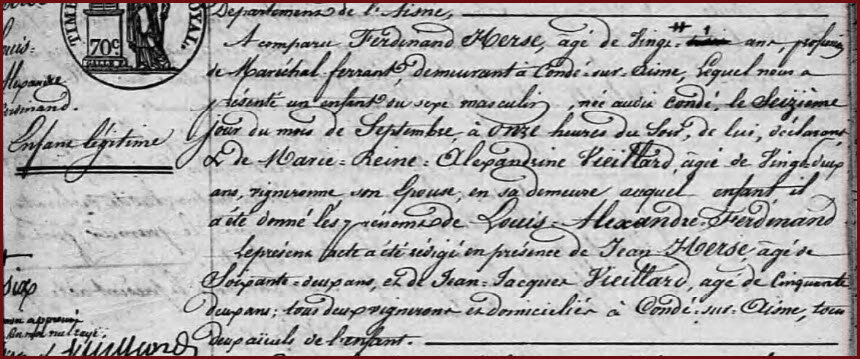 Département de l'Aisne,
TIMB
ROYAL.
70c
A comparu Ferdinand Herse, âgé de Vingt- ans, profession
de Maréchal-ferrant, demeurant à Condé-sur-Aisne, lequel nous a
présenté un enfant du sexe masculin, née audit Condé, le Seizième
jour du mois de Septembre, à Onze heures du Soir, de lui, déclarant
& de Marie-Reine-Alexandrine Vieillard, âgé de Vingt-deux
ans, vigneronne, son Epouse, en sa demeure auquel enfant il
a été donné les prénoms de Louis-Alexandre-Ferdinand
Le présent acte a été rédigé en présence de Jean Herse, âgé de
Soixante-deux ans, et de Jean-Jacques Vieillard, âgé de Cinquante
deux ans; tous deux vignerons et domiciliés à Condé-sur-Aisne, tous
deux aïeuls de l'enfant.
ouis-
lexandre
erdinand.
Enfant légitime
six